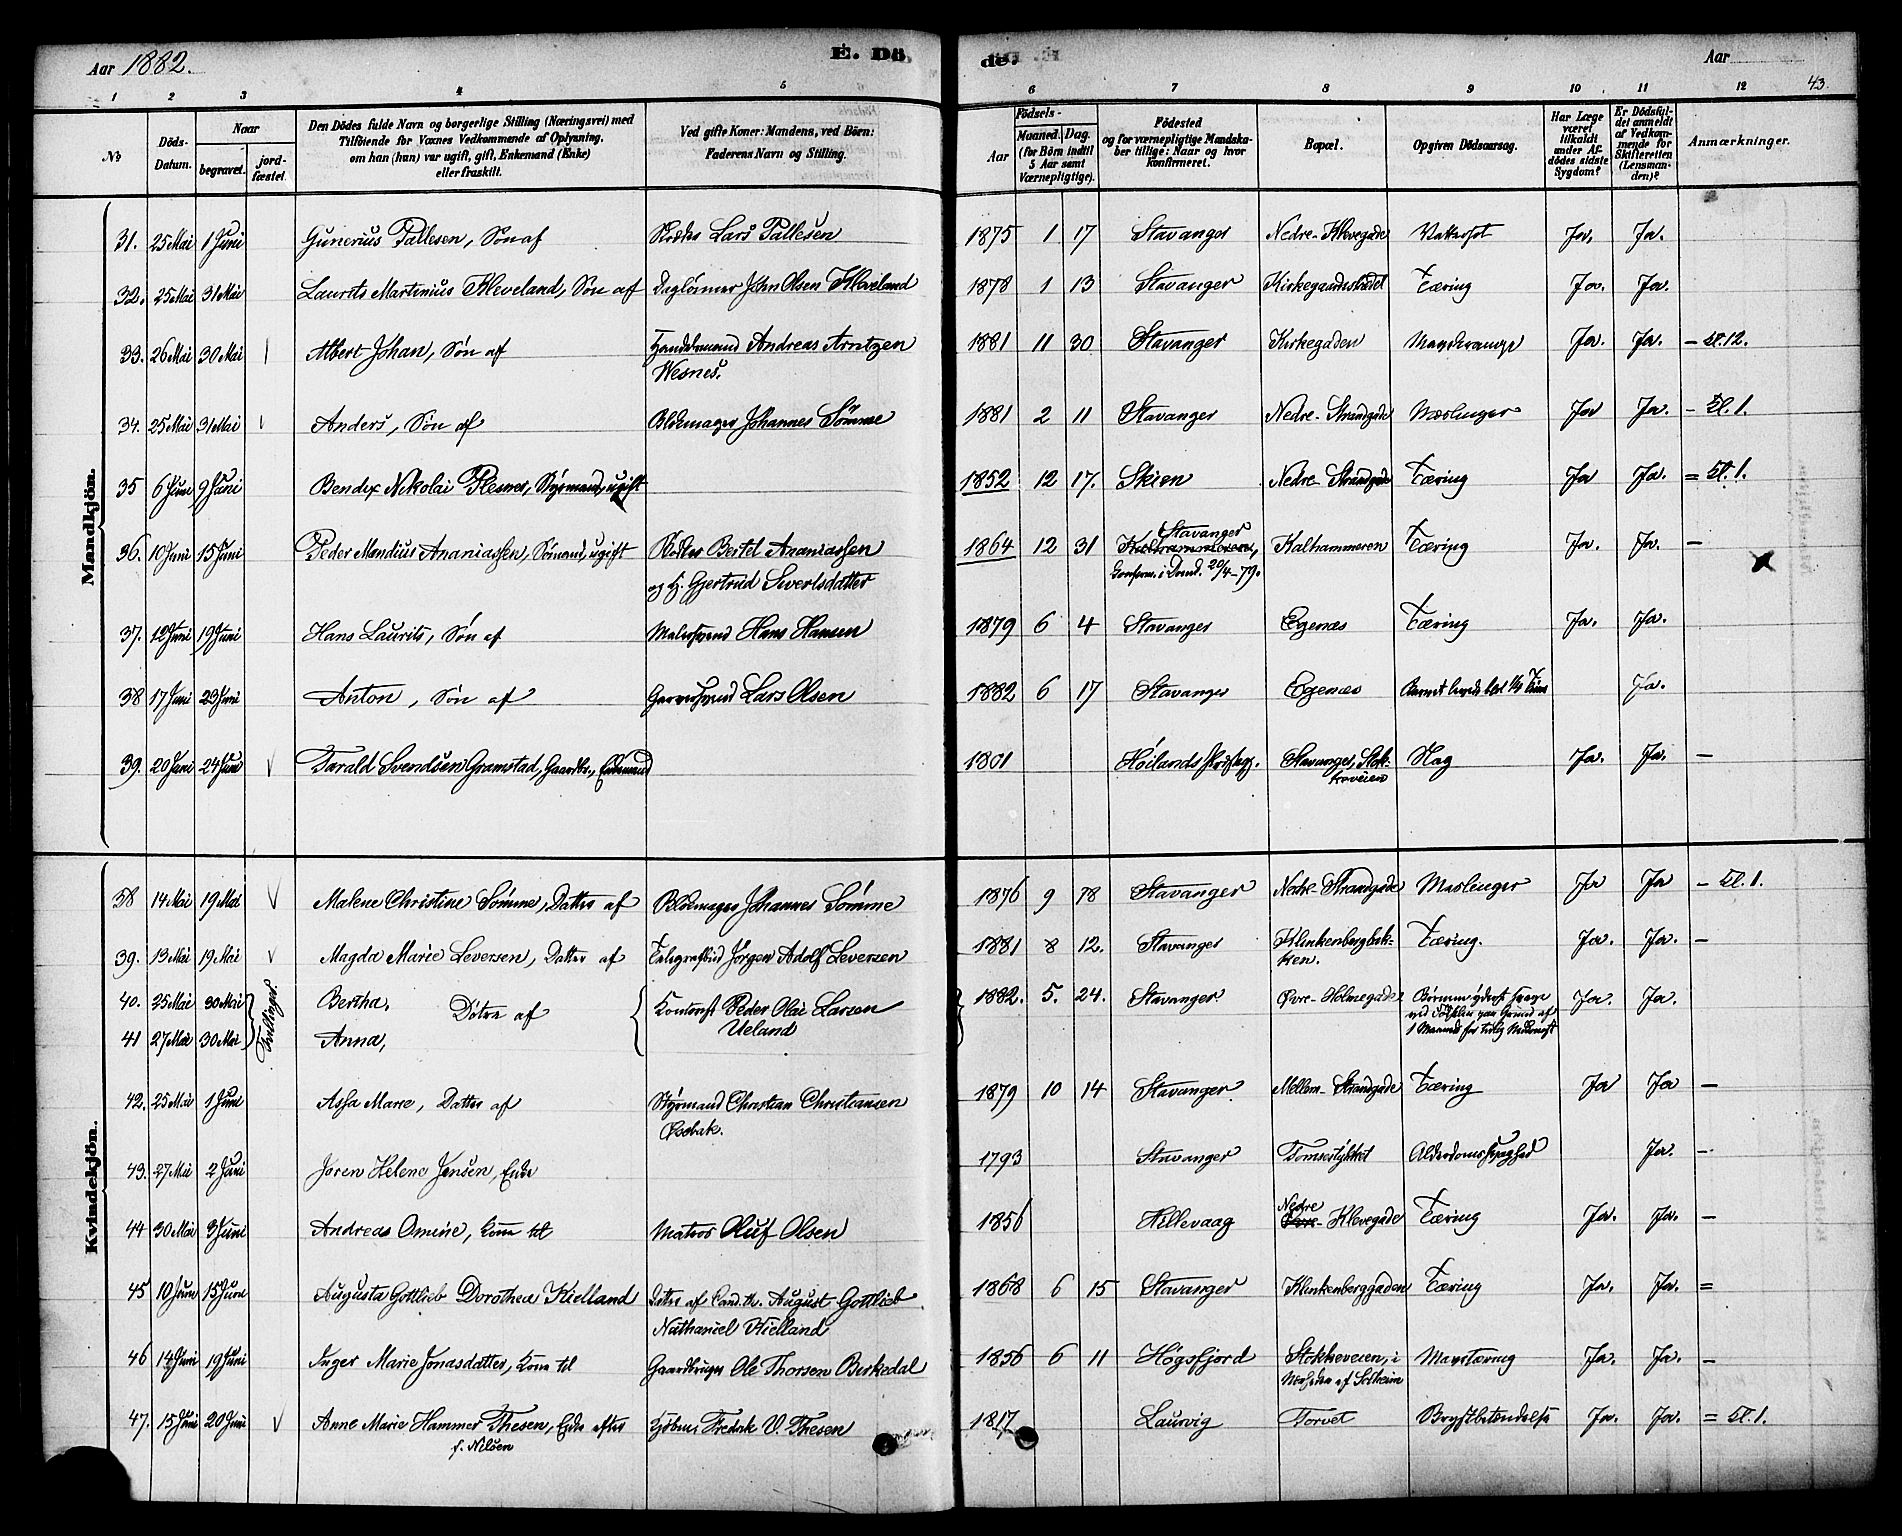 Aar 1882.
E. Dö
de.
Aar
43.
1 2 3 4 5 6 7 8 9 10 11 12
No
Döds-Datum.
Naar
begravet.
jord-fæstet.
Den Dödes fulde Navn og borgerlige Stilling (Næringsvei) med
Tilföiende for Voxnes Vedkommende af Oplysning,
om han (hun) var ugift, gift, Enkemand (Enke)
eller fraskilt.
Ved gifte Koner: Mandens, ved Börn:
Faderens Navn og Stilling.
Födsels-
Aar
Maaned. Dag.
(for Börn indtil
5 Aar samt
Værnepligtige).
Födested
og for værnepligtige Mandska-
ber tillige: Naar og hvor
konfirmeret.
Bopæl.
Opgiven Dödsaarsag.
Har Læge
været
tilkaldt
under Af-
dödes sidste
Sygdom?
Er Dödsfal-
det anmeldt
af Vedkom-
mende for
Skifteretten
(Lensman-
den)?
Anmærkninger.
Mandkjön.
31. 25 Mai 1 Juni Gunerius Pallesen, Søn af Lars Pallesen 1875 1 17 Stavanger Nedre-Klevegade Ja. Ja.
32. 25 Mai 31 Mai Laurits Martinius Kleveland, Søn af Daglønner John Olsen Kleveland 1878 1 13 Stavanger Tæring Ja. Ja.
33. 26 Mai 30 Mai Albert Johan, Søn af Handelsmand Andreas Arntzen 1881 11 30 Stavanger Kirkegaden Ja. Ja. - Kl. 12.
Wesnes.
34. 25 Mai 31 Mai Anders, Søn af Johannes Sømme 1881 2 11 Stavanger Nedre-Strandgade Mæslinger Ja Ja. - Kl. 1.
35 6 Juni 9 Juni Bendix Nikolai Plesner, Styrmand, ugift 1852 12 17. Skien Nedre-Strandgade Tæring Ja Ja. = Kl. 1.
36. 10 Juni 15 Juni Peder Mandius Ananiassen, Sømand, ugift Bertel Ananiassen 1864 12 31 Stavanger Kalhammeren, Kalhammeren Tæring Ja. Ja. -
og H. Gjertrud Sivertsdatter Confirm. i Domk. 20/4-79.
37. 12 Juni 19 Juni Hans Laurits, Søn af Malersvend Hans Hansen 1879 6 4 Stavanger Egenæs Tæring Ja. Ja.
38 17 Juni 23 Juni Anton, Søn af Garversvend Lars Olsen 1882 6 17 Stavanger Egenæs Barnet levede blot Ja.
39. 20 Juni 24 Juni Tarald Svendsen Gramstad, Gaardbr., Enkemand 1801 Høilands Stavanger, Stok-
kaveien Slag Ja. Ja. -
Kvindekjön.
38 14 Mai 19 Mai Malene Christine Sømme, Datter af Johannes Sømme 1876 9 18 Stavanger Nedre-Strandgade Mæslinger Ja Ja - Kl. 1.
39. 13 Mai 19 Mai Magda Marie Leversen, Datter af Telegrafbud Jørgen Adolf Leversen 1881 8 12. Stavanger Klinkenbergbak-
ken. Tæring. Ja. Ja. -
40. 25 Mai 30 Mai Tvillinger. Bertha, Døtre af Kontorist Peder Olai Larsen 1882. 5. 24. Stavanger Øvre-Holmegade Ja. Ja.
41 27 Mai 30 Mai Anna, Ueland
42. 25 Mai 1 Juni Asta Marie, Datter af Styrmand Christian Christiansen 1879 10 14 Stavanger Mellem-Strandgade Tæring Ja Ja -
43. 27 Mai 2 Juni Joren Helene Jensen, Enke 1793 Stavanger Alderdomssvaghed Ja. -
44 30 Mai 3 Juni Andreas Omine, Kone til Matros Oluf Olsen 1856 Hillevaag Nedre Øvre-Klevegade Tæring Ja. Ja. -
45 10 Juni 15 Juni Augusta Gottlieb Dorothea Kielland Datter af Cand. th. August Gottlieb 1868 6 15 Stavanger Klinkenberggaden Tæring Ja. Ja. =
Nathaniel Kielland
46 14 Juni 19 Juni Inger Marie Jonasdatter, Kone til Gaardbruger Ole Thorsen Birkedal 1856 6 11 Høgsfjord Stokkeveien, i Mavetæring Ja. Ja. -
47. 15 Juni 20 Juni Anne Marie Hammer Thesen, Enke efter Kjøbm. Fredrik V. Thesen 1817 Laurvig Torvet Brystbetændelse Ja. Ja. = Kl. 1.
f. Nilsen